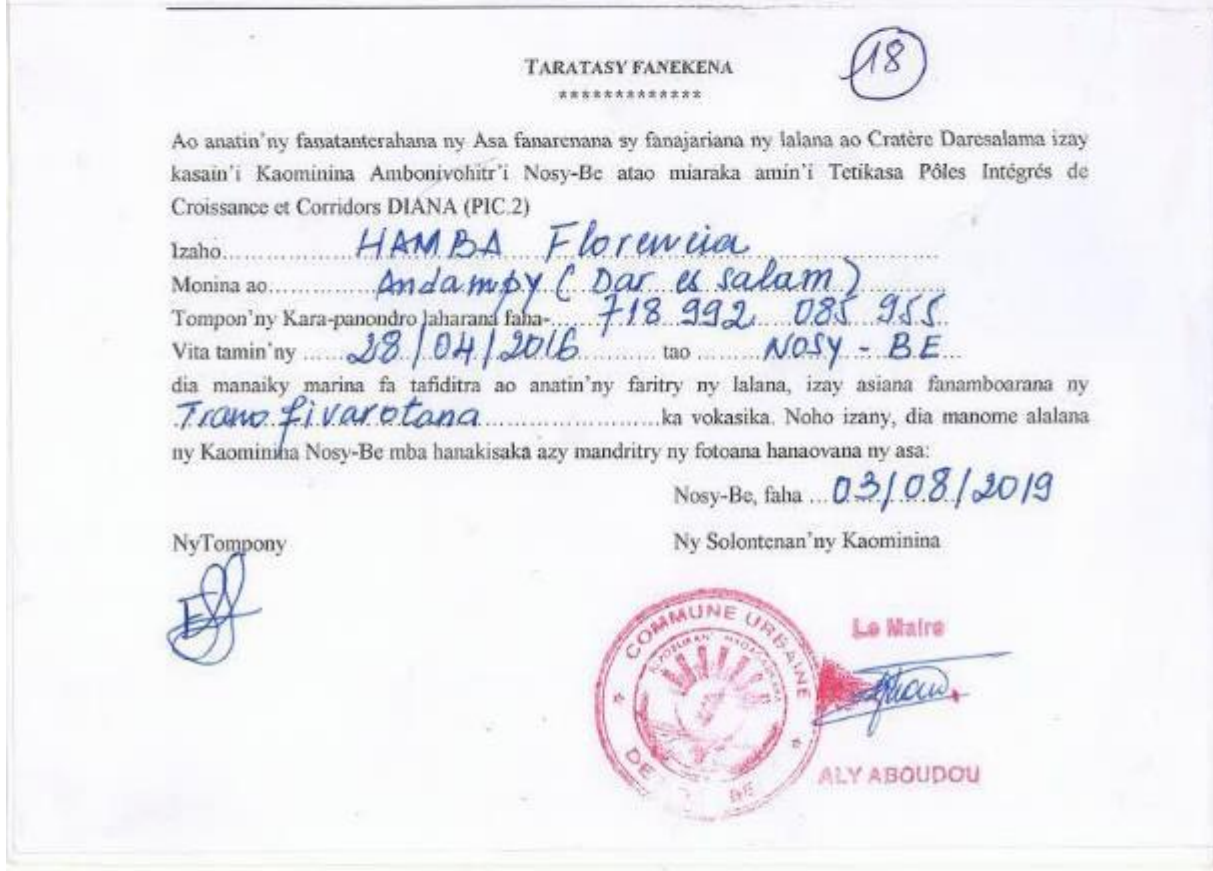 18
TARATASY FANEKENA
*************
Ao anatin'ny fanatanterahana ny Asa fanarenana sy fanajariana ny lalana ao Cratère Daresalama izay
kasain'i Kaominina Ambonivohitr'i Nosy-Be atao miaraka amin'i Tetikasa Pôles Intégrés de
Croissance et Corridors DIANA (PIC.2)
Izaho.................HAMBA Florencia...................
Monina ao...............Andampy (Dar es salam)..........
Tompon'ny Kara-panondro laharana faha-......718 992 085 955
Vita tamin'ny ......28/04/2016.......... tao .........NOSY - BE...
dia manaiky marina fa tafiditra ao anatin'ny faritry ny lalana, izay asiana fanamboarana ny
Trano fivarotana........................ka vokasika. Noho izany, dia manome alalana
ny Kaominina Nosy-Be mba hanakisaka azy mandritry ny fotoana hanaovana ny asa:
Nosy-Be, faha ...03/08/2019
NyTompony
Ny Solontenan'ny Kaominina
COMMUNE URBAINE
DE BE
Le Maire
ALY ABOUDOU